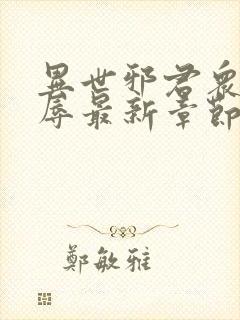 異世邪君眾
辱最新章節
鄭敏雅